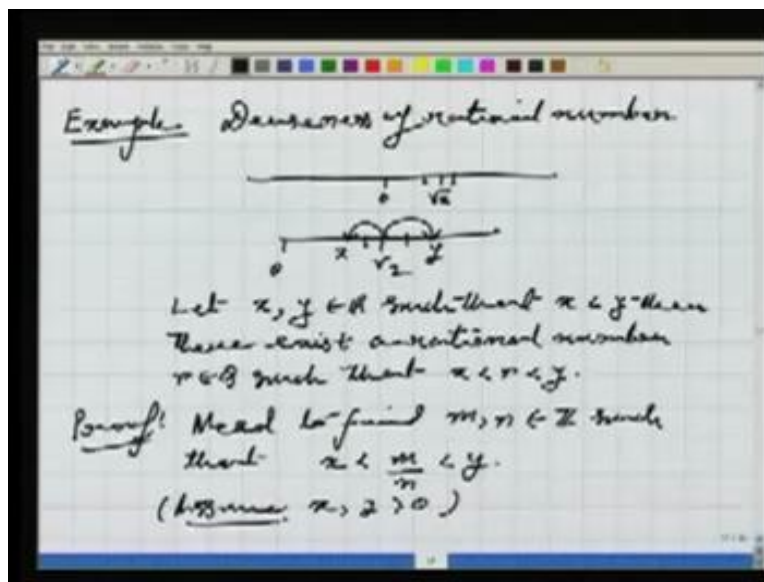 Example Denseness of rational number
0 √2
0 x √2 y
Let x, y ∈ R such that x < y then
there exist a rational number
r ∈ Q such that x < r < y.
Proof: Need to find m, n ∈ Z such
that x < m/n < y.
(Assume x, y > 0)